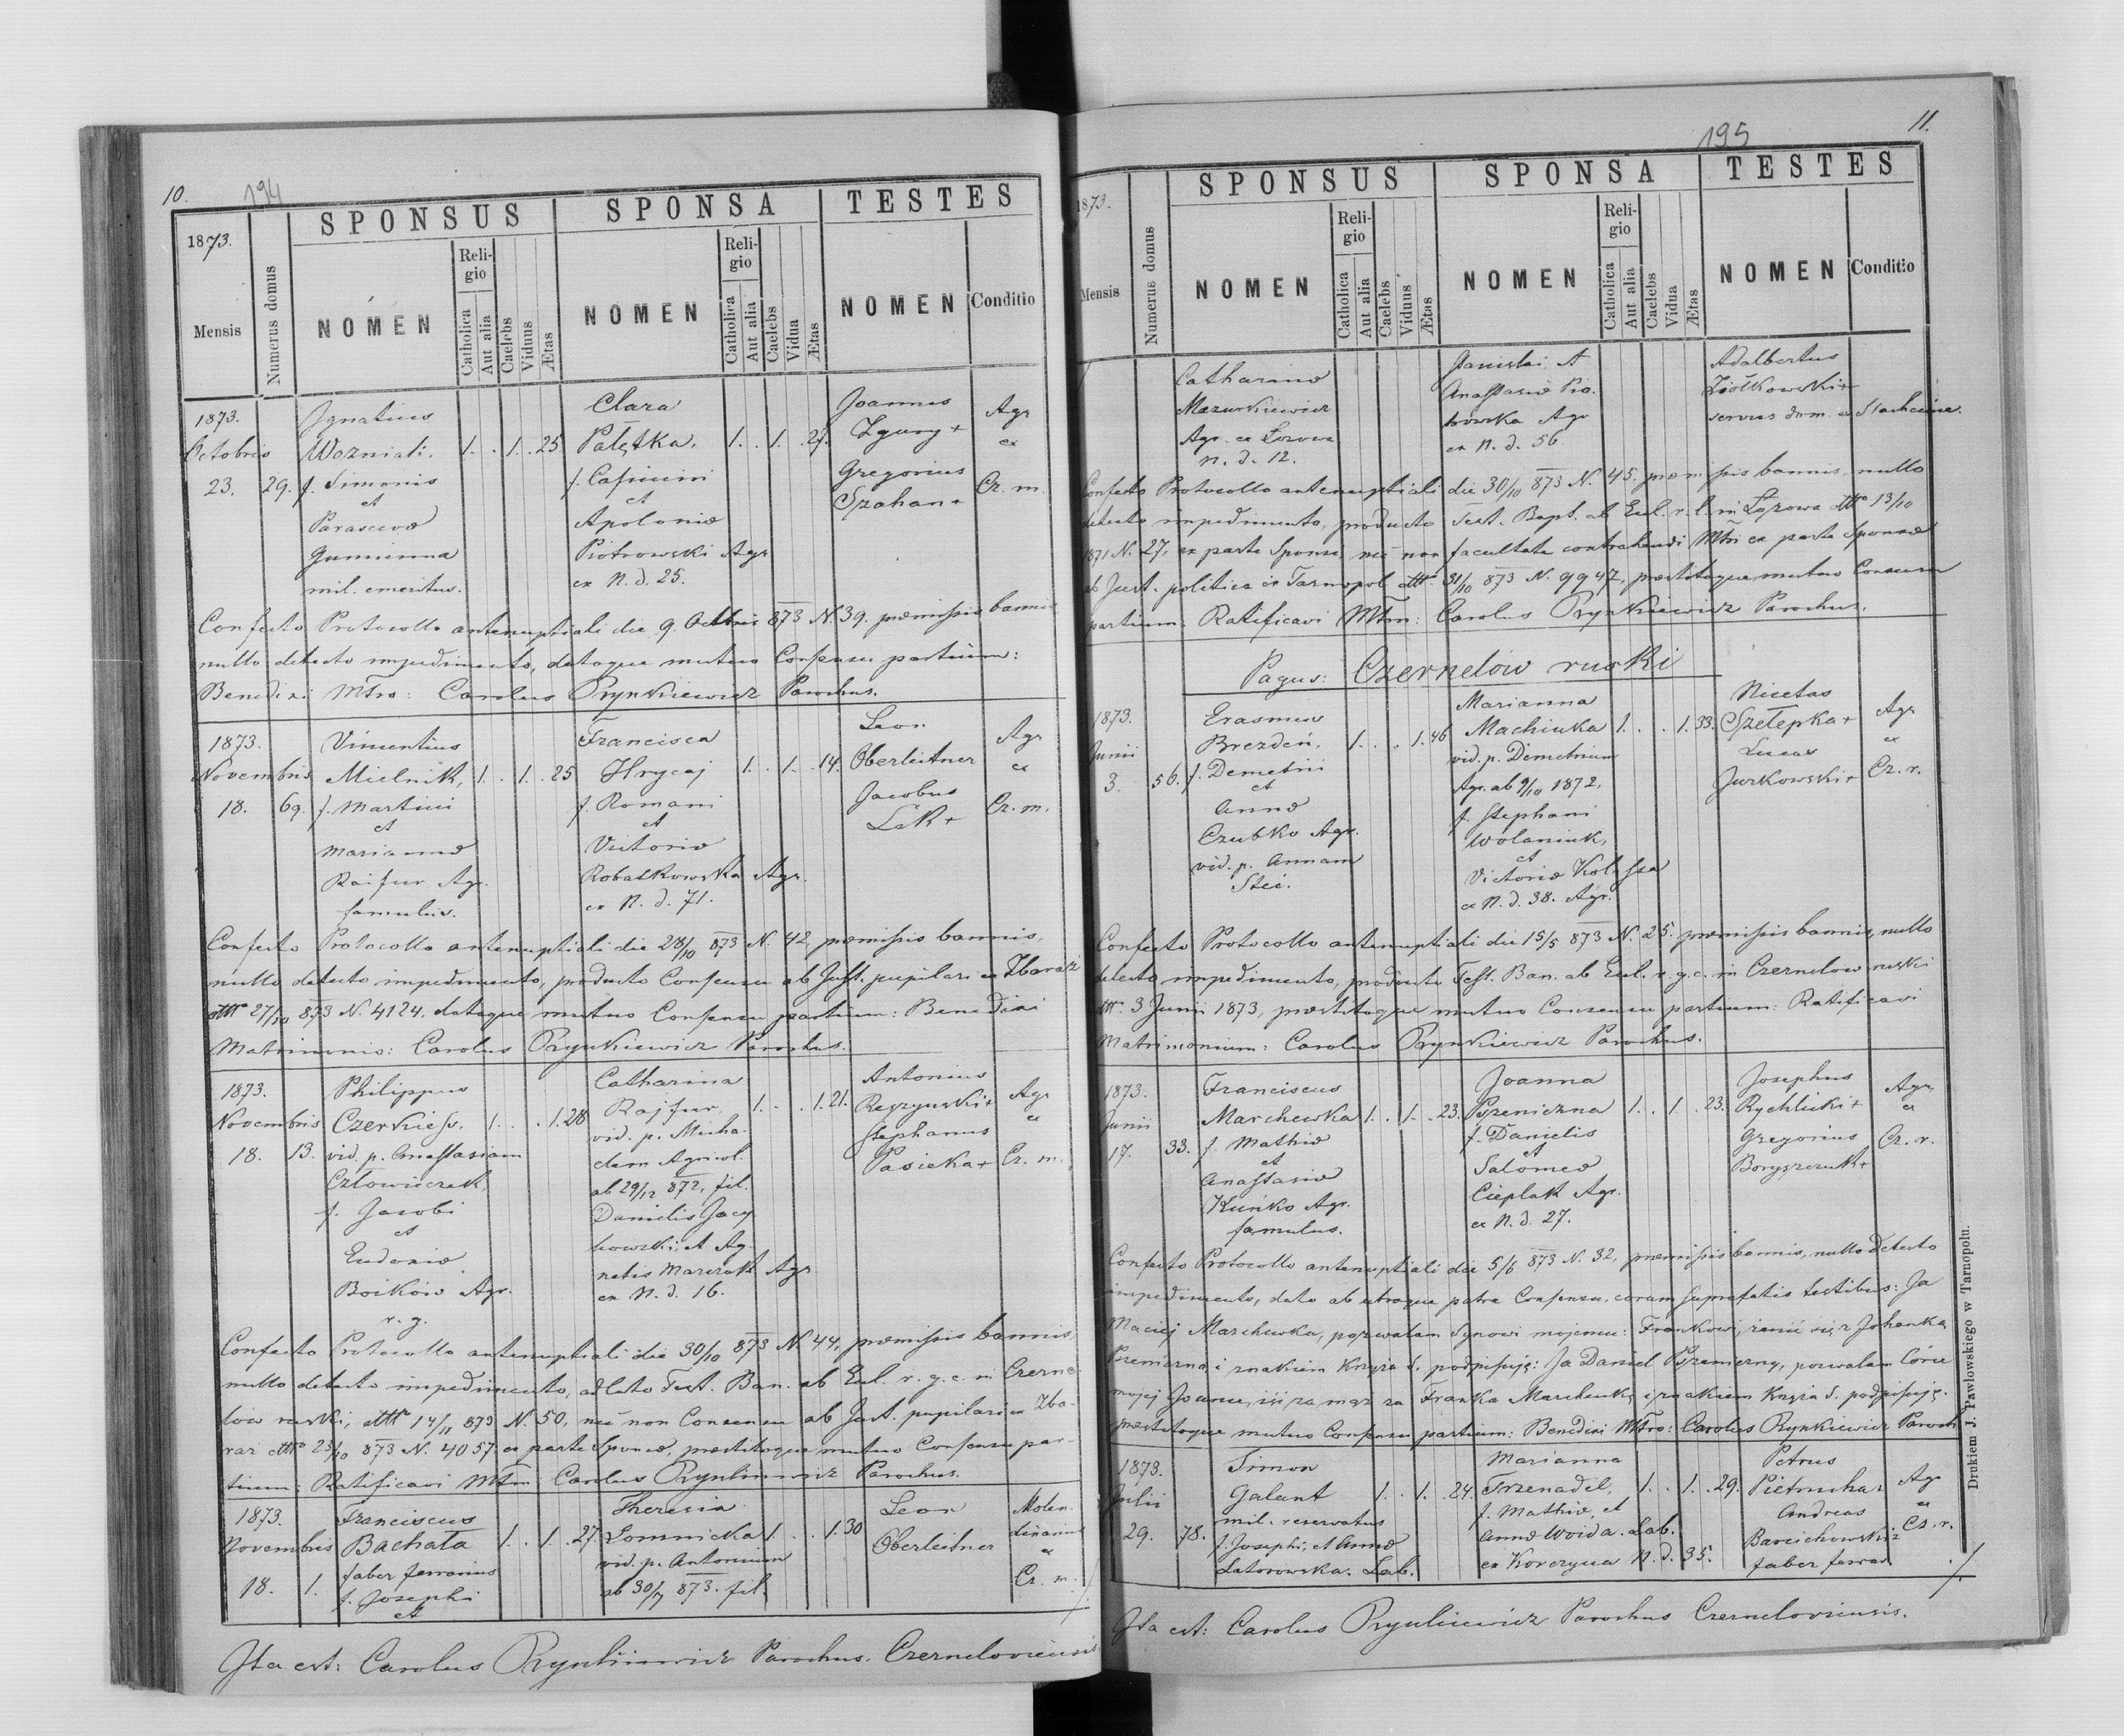 10.
194
1873.
Mensis
Numerus domus
SPONSUS
NOMEN
Religio
Catholica
Aut alia
Caelebs
Viduus
Ætas
SPONSA
NOMEN
Religio
Catholica
Aut alia
Caelebs
Vidua
Ætas
TESTES
NOMEN
Conditio
1873.
Octobris
23.
29.
Ignatius
Wozniak.
f. Simonis
et
Parascevae
Gumienna
mil. emeritus.
1. . 1. . 25.
Clara
Pałętka.
f. Casimiri
et
Apoloniae
Piotrowski Agr.
ex N. d. 25.
1. . 1. . 27.
Joannes
Zgury +
Gregorius
Szahan +
Agr
ex
Cz. m.
Confecto Protocollo antenuptiali die 9. Octbris 873 N. 39. praemissis bannis
nullo detecto impedimento, datoque mutuo Consensu partium:
Benedixi Mtro: Carolus Rynkiewicz Parochus.
1873.
Novembris
18.
69.
Vincentius
Mielnik,
f. Martini
et
Mariannae
Raifur Agr.
famulus.
1. . 1. . 25
Francisca
Hrycaj
f. Romani
et
Victoriae
Robatkowska Agr.
ex N. d. 71.
1. . 1. . 14.
Leon
Oberleitner
Jacobus
Lek +
Agr
ex
Cz. m.
Confecto Protocollo antenuptiali die 28/10 873 N. 42, praemissis bannis,
nullo detecto impedimento, producto Consensu ab Just. pupilari ex Zbaraż
dtto 27/10 873 N. 4124, datoque mutuo Consensu partium: Benedixi
Matrimonio: Carolus Rynkiewicz Parochus.
1873.
Novembris
18.
13.
Philippus
Czerkiess.
vid. p. Anastasiam
Człowieczek,
f. Jacobi
et
Eudoxiae
Boików Agr.
r. g.
1. . . 1. 28
Catharina
Rajfur,
vid. p. Micha-
elem Agricol.
ab 29/12 872, fil.
Danielis Jacy-
kowski, et Ag-
netis Marczak Agr
ex N. d. 16.
1. . . 1. 21.
Antonius
Reszynski +
Stephanus
Pasieka +
Agr
ex
Cz. m.
Confecto Protocollo antenuptiali die 30/10 873 N. 44, praemissis bannis,
nullo detecto impedimento, adlato Test. Ban. ab Eccl. r. g. c. in Czerne-
lów ruski, dtto 14/11 873 N. 50, nec non Consensu ab Just. pupilari ex Zba-
raż dtto 23/10 873 N. 4057 ex parte Sponsae, praestitoque mutuo Consensu par-
tium: Ratificavi Mtm: Carolus Rynkiewicz Parochus.
1873.
Novembris
18.
1.
Franciscus
Bachata
faber ferrarius
f. Josephi
et
1. . 1. . 27.
Theresia
Lomnicka
vid. p. Antonium
ab 30/7 873. fil.
1. . . 1. 30
Leon
Oberleitner
Molen-
dinarius
ex
Cz. m.
Ita est: Carolus Rynkiewicz Parochus. Czerneloviensis
195
11.
1873.
Mensis
Numerus domus
SPONSUS
NOMEN
Religio
Catholica
Aut alia
Caelebs
Viduus
Ætas
SPONSA
NOMEN
Religio
Catholica
Aut alia
Caelebs
Vidua
Ætas
TESTES
NOMEN
Conditio
Catharinae
Mazurkiewicz
Agr. ex Łozowa
N. d. 12.
Stanislai, et
Anastasiae Pio-
trowska Agr
ex N. d. 56.
Adalbertus
Ziołkowski +
servus dom. ex
Confecto Protocollo antenuptiali die 30/10 873 N. 45. praemissis bannis, nullo
detecto impedimento, producto Test. Bapt. ab Eccl. r. l. in Łozowa dtto 13/10
1871 N. 27, ex parte Sponsi, nec non facultate contrahendi Mtri ex parte Sponsae
ab Just. politica ex Tarnopol dtto 31/10 873 N. 9947, praestitoque mutuo Consensu
partium: Ratificavi Mtm: Carolus Rynkiewicz Parochus.
Pagus: Czernelów ruski
1873.
Junii
3.
56.
Erasmus
Brezdeń,
f. Demetrii
et
Annae
Czubko Agr.
vid. p. Annam
Steć.
1. . . 1. 46
Marianna
Machiuka
vid. p. Demetrium
Agr. ab 9/10 1872.
f. Stephani
Wolaniuk,
et
Victoriae Kolassa
ex N. d. 38. Agr.
1. . . 1. 33.
Nicetas
Szełepka +
Lucas
Jurkowski +
Agr
ex
Cz. r.
Confecto Protocollo antenuptiali die 15/5 873 N. 25. praemissis bannis, nullo
detecto impedimento, producto Test. Ban. ab Eccl. r. g. c. in Czernelow ruski
dtto. 3 Junii 1873, praestitoque mutuo Consensu partium: Ratificavi
Matrimonium: Carolus Rynkiewicz Parochus.
1873.
Junii
17.
33.
Franciscus
Marchewka
f. Mathiae
et
Anastasiae
Kuńko Agr.
famulus.
1. . 1. . 23.
Joanna
Pszeniczna
f. Danielis
et
Salomeae
Cieplak Agr.
ex N. d. 27.
1. . 1. . 23.
Josephus
Rychlicki +
Gregorius
Boryszczuk +
Agr
ex
Cz. r.
Confecto Protocollo antenuptiali die 5/6 873 N. 32, praemissis bannis, nullo detecto
impedimento, dato ab utroque patre Consensu, coram suprafatis testibus: Ja
Maciej Marchewka, pozwalam Synowi mojemu: Frankowi, żenić się z Johanką
i znakiem Krzyża S. podpisuję: Ja Daniel pozwalam Córce
mojej Joannie, iść za mąż za Franka Marchewkę i znakiem Krzyża S. podpisuję.
praestitoque mutuo Consensu partium: Benedixi Mtro: Carolus Rynkiewicz Paroch
1873.
Julii
29.
78.
Simon
Galant
mil. reservatus
f. Josephi, et Annae
Latorowska. Lab.
1. . 1. . 24.
Marianna
Trzenadel,
f. Mathiae, et
Annae Woida. Lab.
ex Korczyna N. d. 35.
1. . 1. . 29.
Petrus
Pietruchar
Andreas
Barcichowski
faber ferrar.
Agr
ex
Cz. r.
./.
Ita est: Carolus Rynkiewicz Parochus Czerneloviensis.
Drukiem J. Pawłowskiego w Tarnopolu.